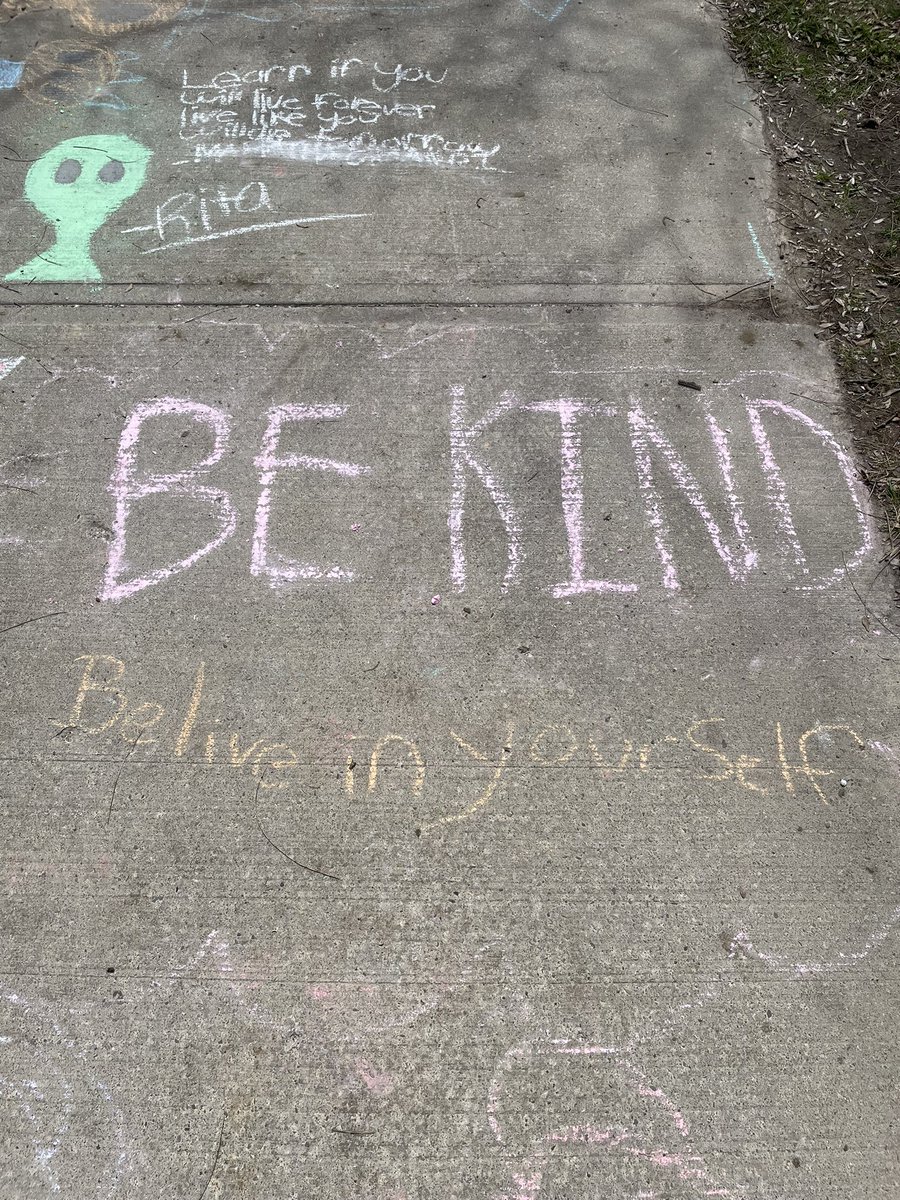 Learn if you
will live forever
live like you
will die tomorrow
-Rita
BE KIND
Belive in yourself